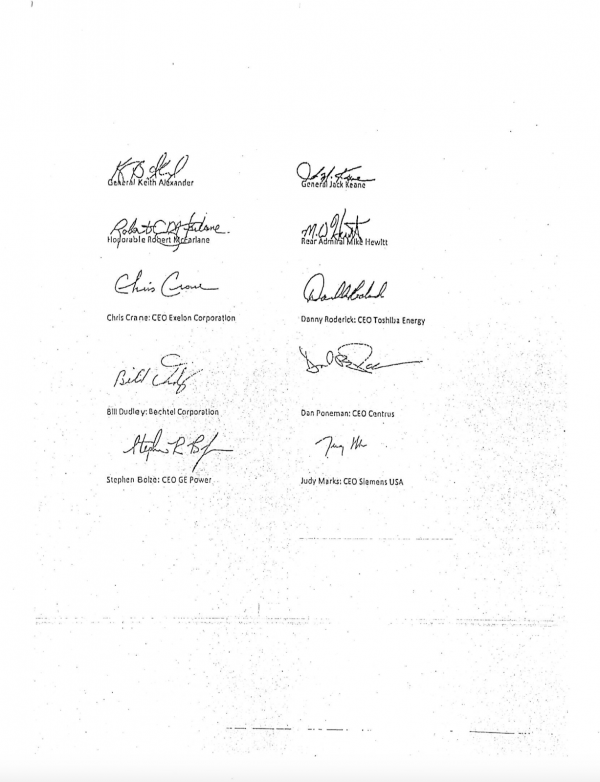 General Keith Alexander
General Jack Keane
Robert C McFarlane
Honorable Robert McFarlane
M.D. Hewitt
Rear Admiral Mike Hewitt
Chris Crane
Chris Crane: CEO Exelon Corporation
Danny Roderick: CEO Toshiba Energy
Bill
Bill Dudley: Bechtel Corporation
Dan Poneman: CEO Centrus
Stephen R B
Stephen Bolze: CEO GE Power
Judy Marks: CEO Siemens USA